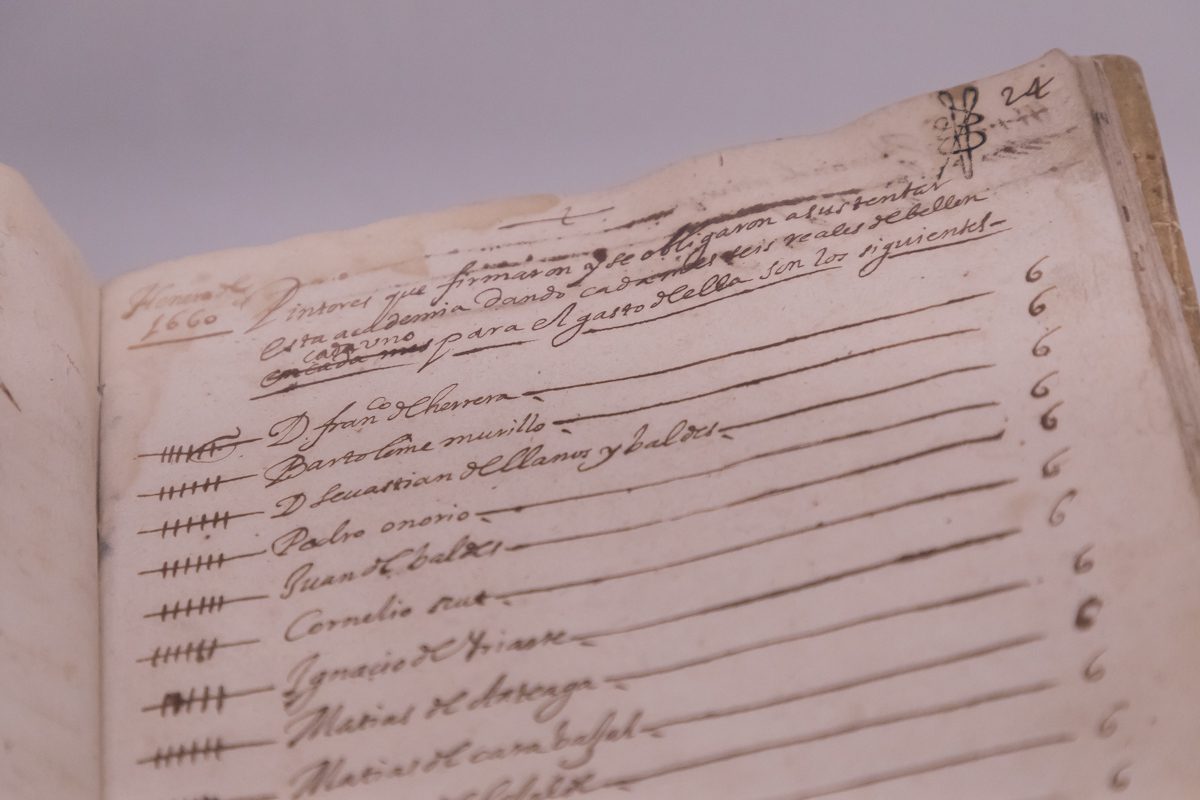 24
Henero de
1660
Pintores que firmaron y se obligaron a sustentar
esta academia dando cada mes seis reales de bellon
cada uno
en cada mes para el gasto de ella son los siguientes
D. franco de herrera 6
Bartolome murillo 6
D sevastian de llanos y baldes 6
Pedro onorio 6
Juan de baldes 6
Cornelio scut 6
Ignacio de Yriarte 6
Matias de Arteaga 6
Matias de carabassal 6